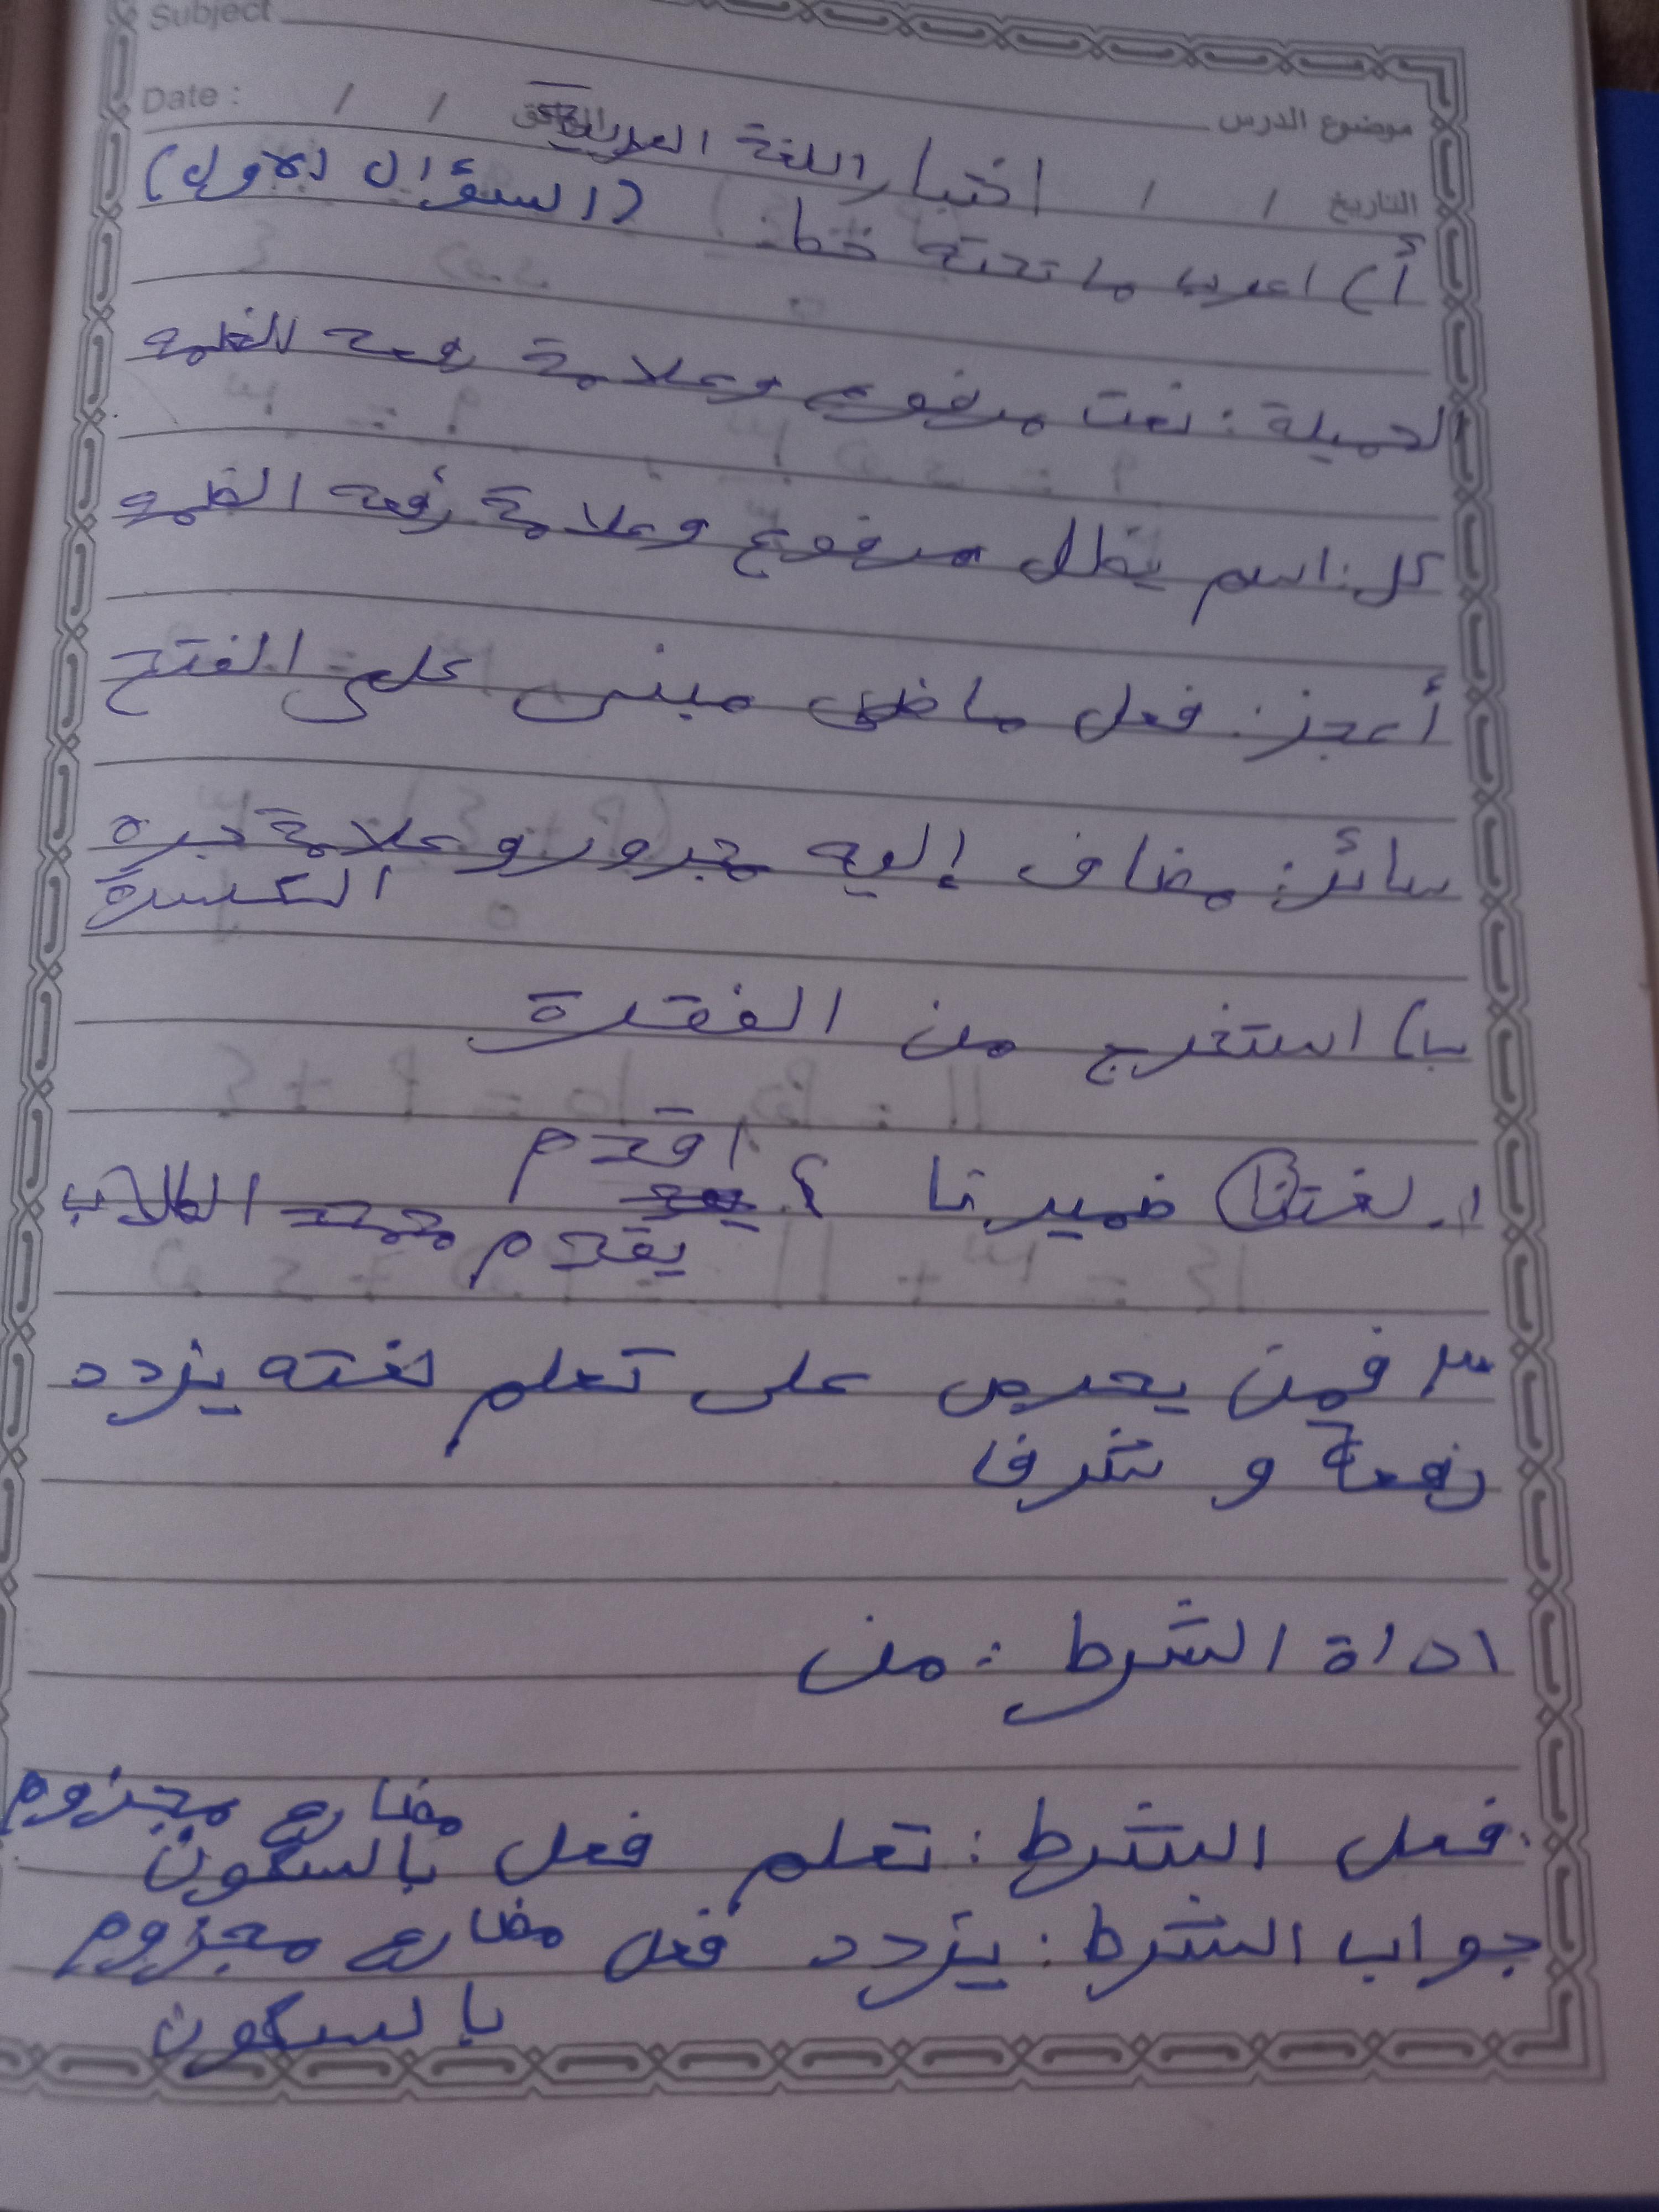 Subject
Date : / / الموافق موضوع الدرس
التاريخ / / اختبار اللغة العربية
أ) اعرب ما تحته خط. (السؤال الاول)
لجميلة: نعت مرفوع وعلامة رفعه الضمه
كل: اسم يظل مرفوع وعلامة رفعه الضمه
أعجز: فعل ماضى مبنى على الفتح
سائر: مضاف إليه مجرور وعلامة جره
الكسرة
ب) استخرج من الفقرة
١. لغتنا ضمير نا ٢. اقدم
يقدم محمد الطلاب
٣ فمن يحرص على تعلم لغته يزدد
رفعة و شرفا
اداة الشرط : من
فعل الشرط : تعلم فعل مضارع مجزوم
بالسكون
جواب الشرط : يزدد فعل مضارع مجزوم
بالسكون